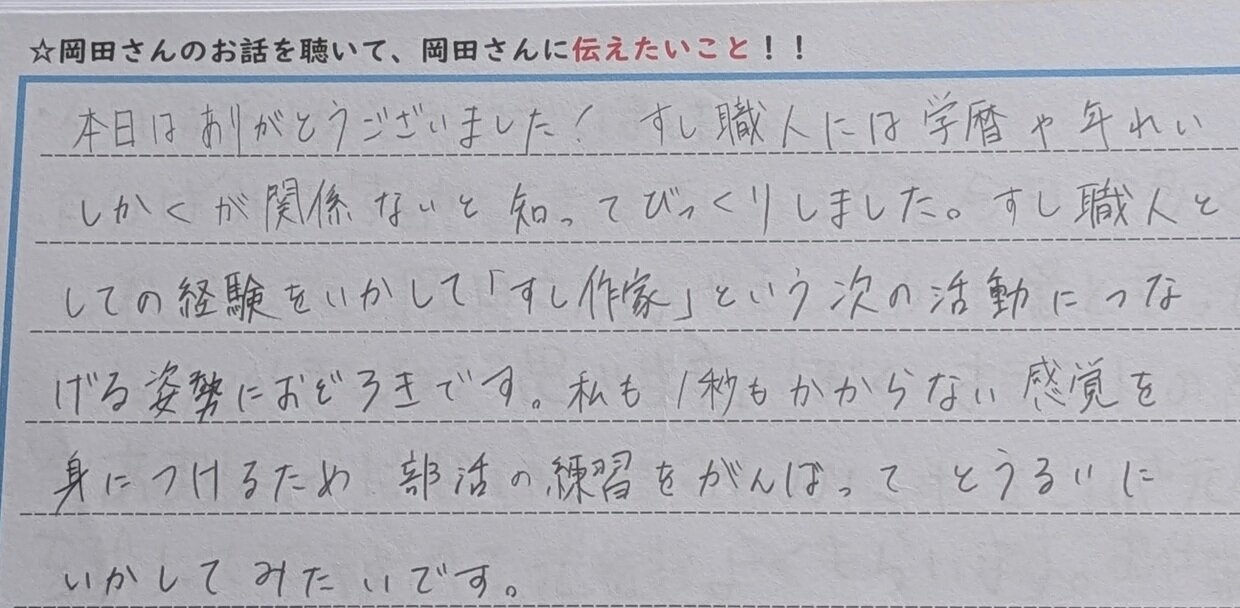 ☆岡田さんのお話を聴いて、岡田さんに伝えたいこと！！
本日はありがとうございました！ すし職人には学暦や年れい
しかくが関係ないと知ってびっくりしました。すし職人と
しての経験をいかして「すし作家」という次の活動につな
げる姿勢におどろきです。私も1秒もかからない感覚を
身につけるため部活の練習をがんばってとうるいに
いかしてみたいです。